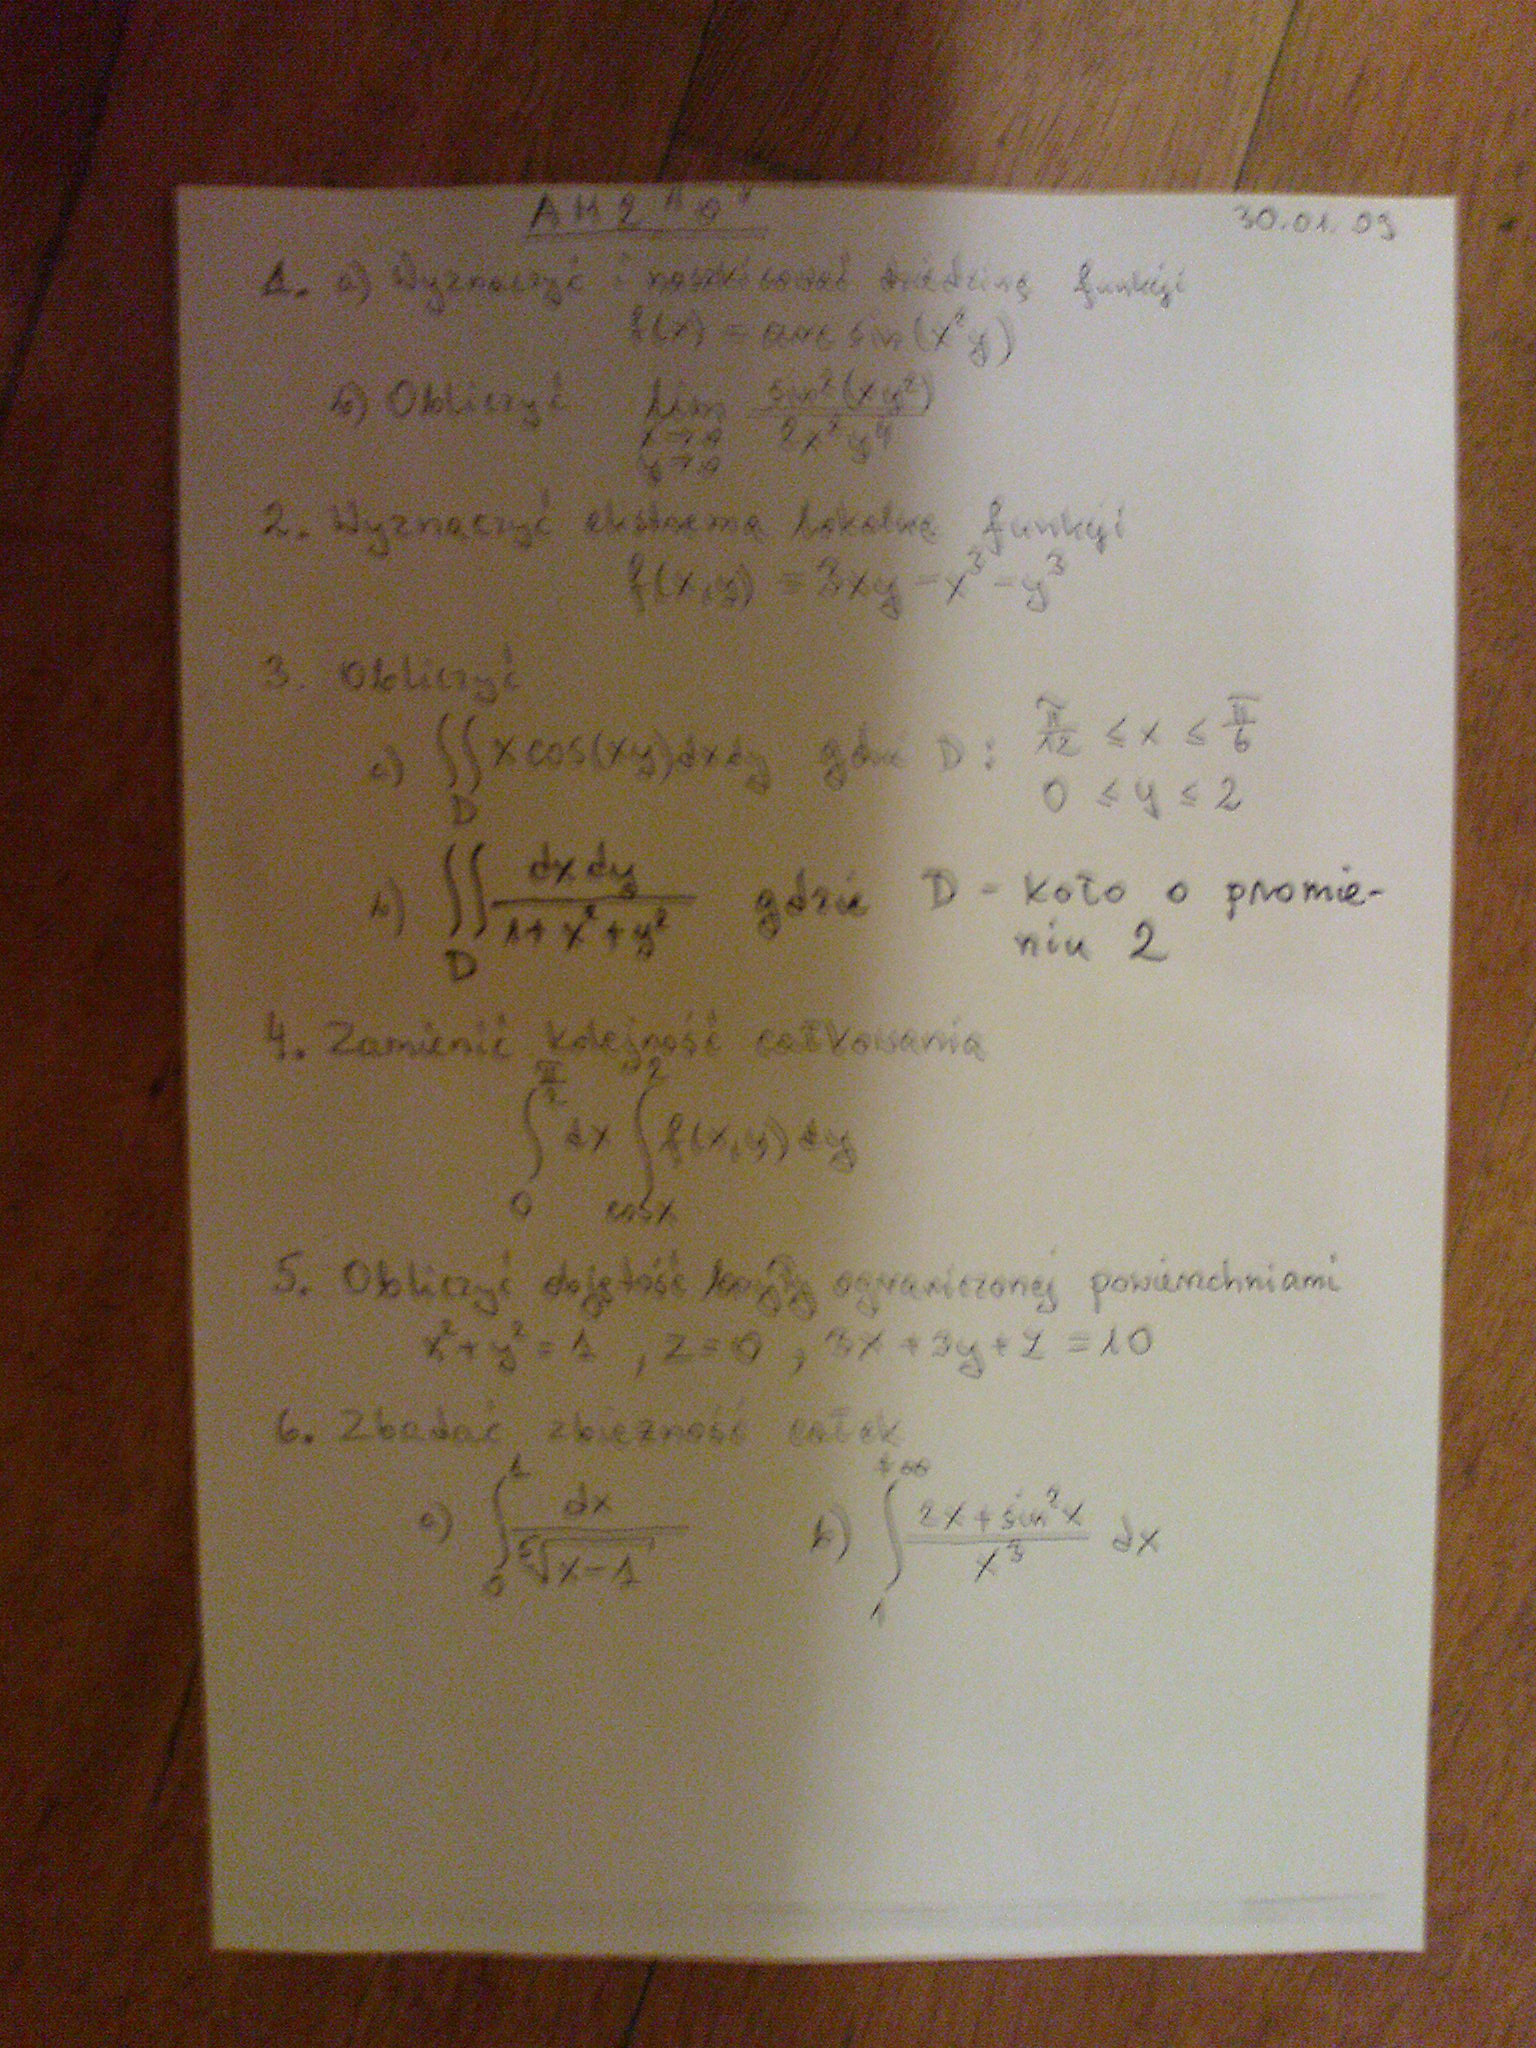 AM2 "0"
30.01.09
1. a) Wyznaczyć i naszkicować dziedzinę funkcji
f(x) = arc sin(x²y)
b) Obliczyć lim x→0 y→0 sin²(xy²) / 2x²y⁴
2. Wyznaczyć ekstrema lokalne funkcji
f(x,y) = 3xy - x³ - y³
3. Obliczyć
a) ∬_D x cos(xy)dxdy gdzie D: π/12 ≤ x ≤ π/6
0 ≤ y ≤ 2
b) ∬_D dxdy / 1+x²+y² gdzie D - koło o promie-
niu 2
4. Zamienić kolejność całkowania
∫_0^{π/2} dx ∫_{cosx}^2 f(x,y)dy
5. Obliczyć objętość bryły ograniczonej powierzchniami
x²+y²=1, z=0, 3x+3y+z=10
6. Zbadać zbieżność całek
a) ∫_0^1 dx / ⁵√(x-1) b) ∫_1^{+∞} 2x+sin²x / x³ dx